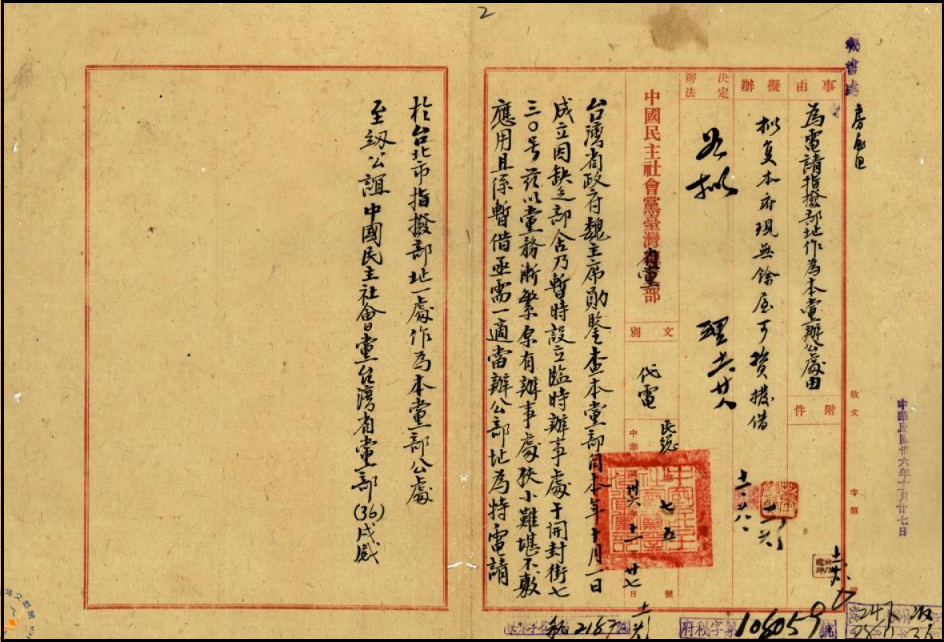 2
房屋田
事由
為電請指撥部址作為本黨辦公處由
擬辦
擬复本府現無餘屋可資撥借
附件
決定辦法
如擬
中國民主社會黨臺灣省黨部
文別
代電
中華民國卅六年十一月廿七日
台灣省政府魏主席勛鑒查本黨部自本年十月一日
成立因缺乏部舍乃暫時設立臨時辦事處于開封街七
三〇号茲以黨務漸繁原有辦事處狹小難堪不敷
應用且係暫借亟需一適當辦公部址為特電請
於台北市指撥部址一處作為本黨部公處
至紉公誼中國民主社會黨台灣省黨部(36)戌感
收文
字第
號
中華民國卅六年十一月廿七日
106059